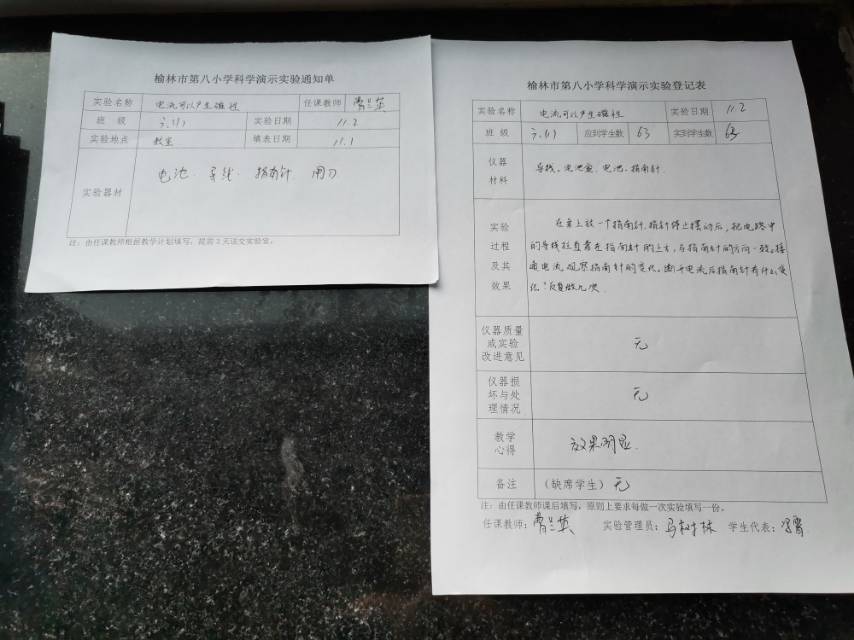 榆林市第八小学科学演示实验通知单
实验名称 电流可以产生磁性 任课教师 曹兰英
班 级 六.(1) 实验日期 11.2
实验地点 教室 填表日期 11.1
实验器材 电池. 导线. 指南针 闸刀
注:由任课教师根据教学计划填写,提前2天送交实验室。
榆林市第八小学科学演示实验登记表
实验名称 电流可以产生磁性 实验日期 11.2
班 级 六.(1) 应到学生数 63 实到学生数 63
仪器
材料
导线。电池盒. 电池. 指南针.
实验
过程
及其
效果
在桌上放一个指南针,指针停止摆动后,把电路中
的导线拉直靠在指南针的上方,与指南针的方向一致。接
通电流,观察指南针的变化。断开电流后指南针有什么变
化?反复做几次.
仪器质量
或实验
改进意见
无
仪器损
坏与处
理情况
无
教学
心得
效果明显.
备注 (缺席学生) 无
注:由任课教师课后填写,原则上要求每做一次实验填写一份。
任课教师: 曹兰英 实验管理员: 马树林 学生代表: